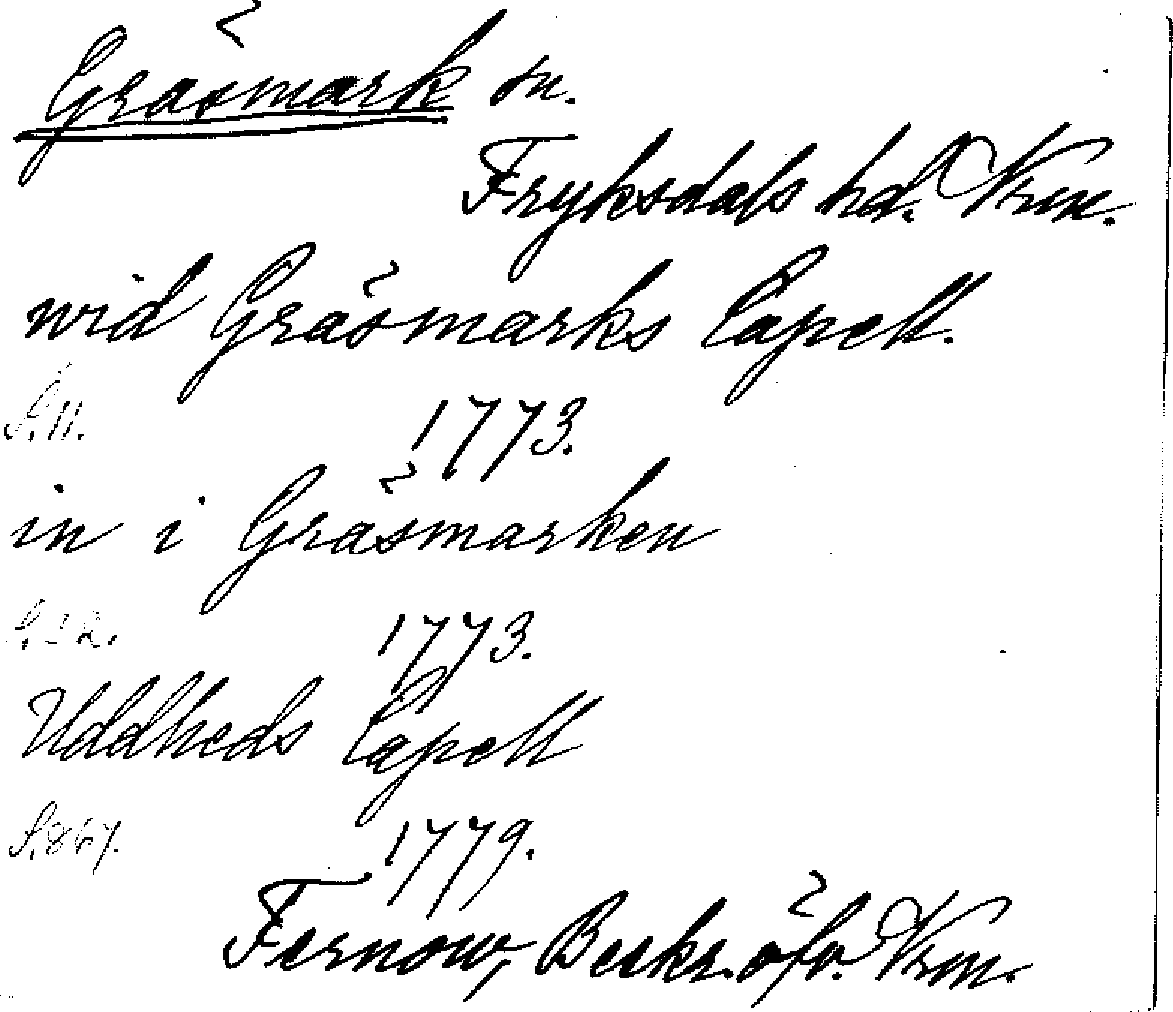 Gräsmark sn.
Fryksdals hd. Vrm.
wid Gräsmarks Capell.
S. 11. 1773.
in i Gräsmarken
S. 22. 1773.
Uddheds Capell
S. 867. 1779.
Fernow, Beskr. öfv. Vrm.